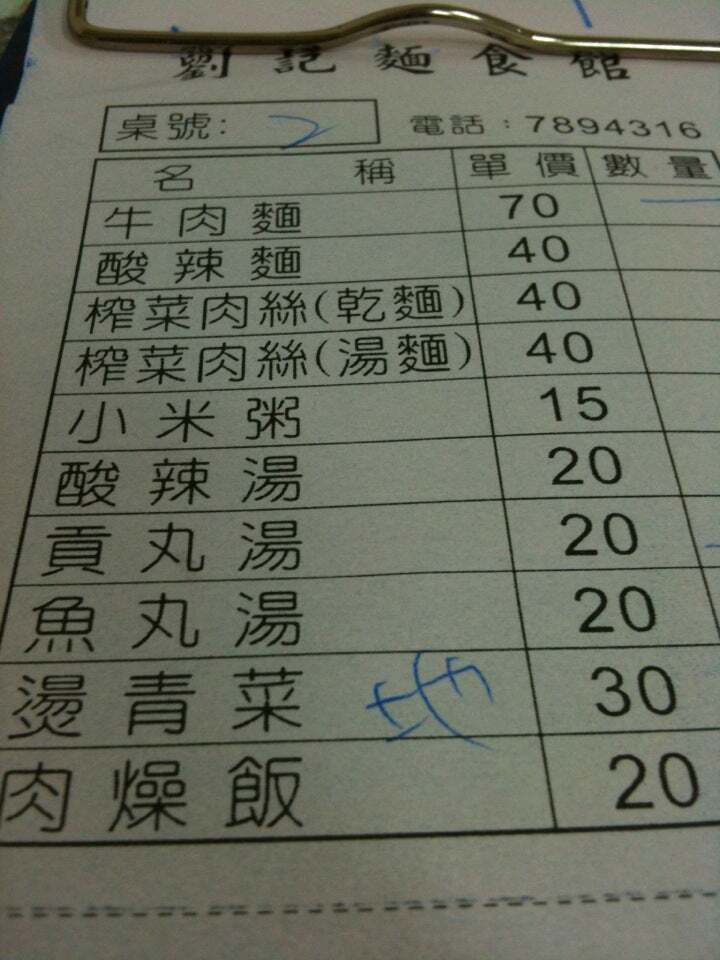 劉記麵食館
桌號: 2 電話：7894316
名稱 單價 數量
牛肉麵 70 一
酸辣麵 40
榨菜肉絲(乾麵) 40
榨菜肉絲(湯麵) 40
小米粥 15
酸辣湯 20
貢丸湯 20
魚丸湯 20
燙青菜 地 30
肉燥飯 20